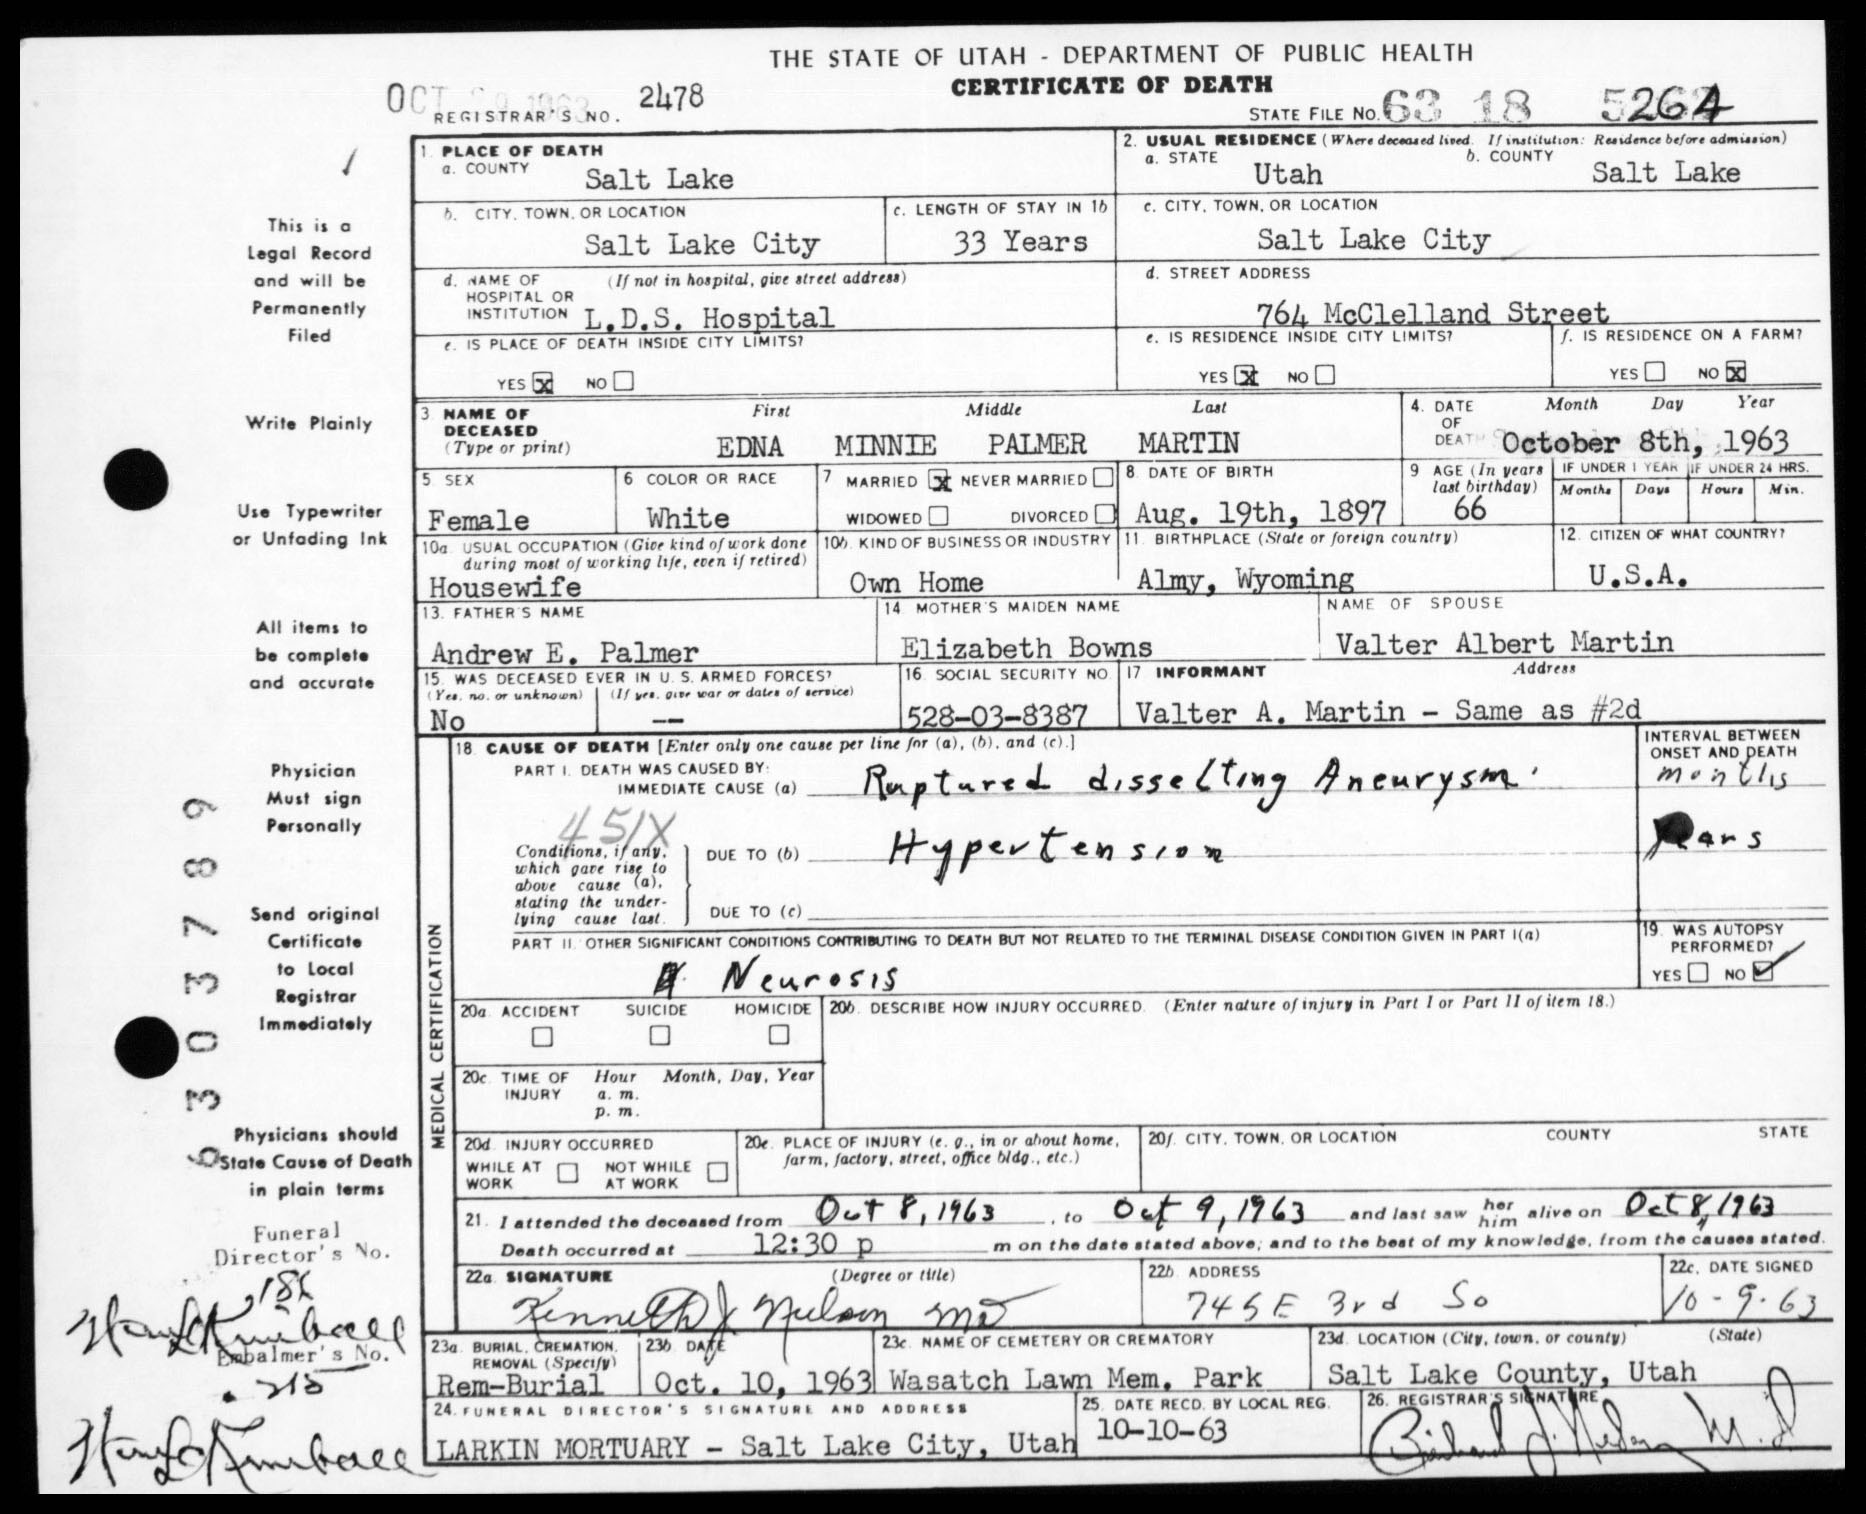 THE STATE OF UTAH - DEPARTMENT OF PUBLIC HEALTH
CERTIFICATE OF DEATH
OCT 1963
REGISTRAR'S NO. 2478
STATE FILE NO. 63 18 5264
This is a
Legal Record
and will be
Permanently
Filed
Write Plainly
Use Typewriter
or Unfading Ink
All items to
be complete
and accurate
Physician
Must sign
Personally
Send original
Certificate
to Local
Registrar
Immediately
Physicians should
State Cause of Death
in plain terms
Funeral
Director's No.
Embalmer's No.
6303789
1. PLACE OF DEATH
a. COUNTY
Salt Lake
2. USUAL RESIDENCE (Where deceased lived. If institution: Residence before admission)
a. STATE b. COUNTY
Utah Salt Lake
b. CITY, TOWN, OR LOCATION
Salt Lake City
c. LENGTH OF STAY IN 1b
33 Years
c. CITY, TOWN, OR LOCATION
Salt Lake City
d. NAME OF (If not in hospital, give street address)
HOSPITAL OR
INSTITUTION L.D.S. Hospital
d. STREET ADDRESS
764 McClelland Street
e. IS PLACE OF DEATH INSIDE CITY LIMITS?
YES X NO
e. IS RESIDENCE INSIDE CITY LIMITS?
YES X NO
f. IS RESIDENCE ON A FARM?
YES NO X
3 NAME OF First Middle Last
DECEASED
(Type or print) EDNA MINNIE PALMER MARTIN
4. DATE Month Day Year
OF
DEATH October 8th, 1963
5. SEX
Female
6 COLOR OR RACE
White
7 MARRIED X NEVER MARRIED
WIDOWED DIVORCED
8. DATE OF BIRTH
Aug. 19th, 1897
9 AGE (In years
last birthday)
66
IF UNDER 1 YEAR IF UNDER 24 HRS.
Months Days Hours Min.
10a. USUAL OCCUPATION (Give kind of work done
during most of working life, even if retired)
Housewife
10b. KIND OF BUSINESS OR INDUSTRY
Own Home
11. BIRTHPLACE (State or foreign country)
Almy, Wyoming
12. CITIZEN OF WHAT COUNTRY?
U.S.A.
13. FATHER'S NAME
Andrew E. Palmer
14 MOTHER'S MAIDEN NAME
Elizabeth Bowns
NAME OF SPOUSE
Valter Albert Martin
15. WAS DECEASED EVER IN U.S. ARMED FORCES?
(Yes, no, or unknown) (If yes, give war or dates of service)
No --
16. SOCIAL SECURITY NO.
528-03-8387
17 INFORMANT Address
Valter A. Martin - Same as #2d
MEDICAL CERTIFICATION
18. CAUSE OF DEATH [Enter only one cause per line for (a), (b), and (c).]
INTERVAL BETWEEN
ONSET AND DEATH
PART I. DEATH WAS CAUSED BY:
IMMEDIATE CAUSE (a) Ruptured dissecting Aneurysm months
451X
Conditions, if any,
which gave rise to
above cause (a),
stating the under-
lying cause last.
DUE TO (b) Hypertension years
DUE TO (c)
PART II. OTHER SIGNIFICANT CONDITIONS CONTRIBUTING TO DEATH BUT NOT RELATED TO THE TERMINAL DISEASE CONDITION GIVEN IN PART I(a)
Neurosis
19. WAS AUTOPSY
PERFORMED?
YES NO ✓
20a. ACCIDENT SUICIDE HOMICIDE
20b. DESCRIBE HOW INJURY OCCURRED. (Enter nature of injury in Part I or Part II of item 18.)
20c. TIME OF Hour Month, Day, Year
INJURY a. m.
p. m.
20d. INJURY OCCURRED
WHILE AT NOT WHILE
WORK AT WORK
20e. PLACE OF INJURY (e. g., in or about home,
farm, factory, street, office bldg., etc.)
20f. CITY, TOWN, OR LOCATION COUNTY STATE
21. I attended the deceased from Oct 8, 1963, to Oct 9, 1963 and last saw her him alive on Oct 8, 1963
Death occurred at 12:30 p m on the date stated above; and to the best of my knowledge, from the causes stated.
22a. SIGNATURE (Degree or title)
Kenneth J Nielson MD
22b. ADDRESS
745 E 3rd So
22c. DATE SIGNED
10-9-63
23a. BURIAL, CREMATION,
REMOVAL (Specify)
Rem-Burial
23b. DATE
Oct. 10, 1963
23c. NAME OF CEMETERY OR CREMATORY
Wasatch Lawn Mem. Park
23d. LOCATION (City, town, or county) (State)
Salt Lake County, Utah
24. FUNERAL DIRECTOR'S SIGNATURE AND ADDRESS
LARKIN MORTUARY - Salt Lake City, Utah
25. DATE RECD. BY LOCAL REG.
10-10-63
26. REGISTRAR'S SIGNATURE